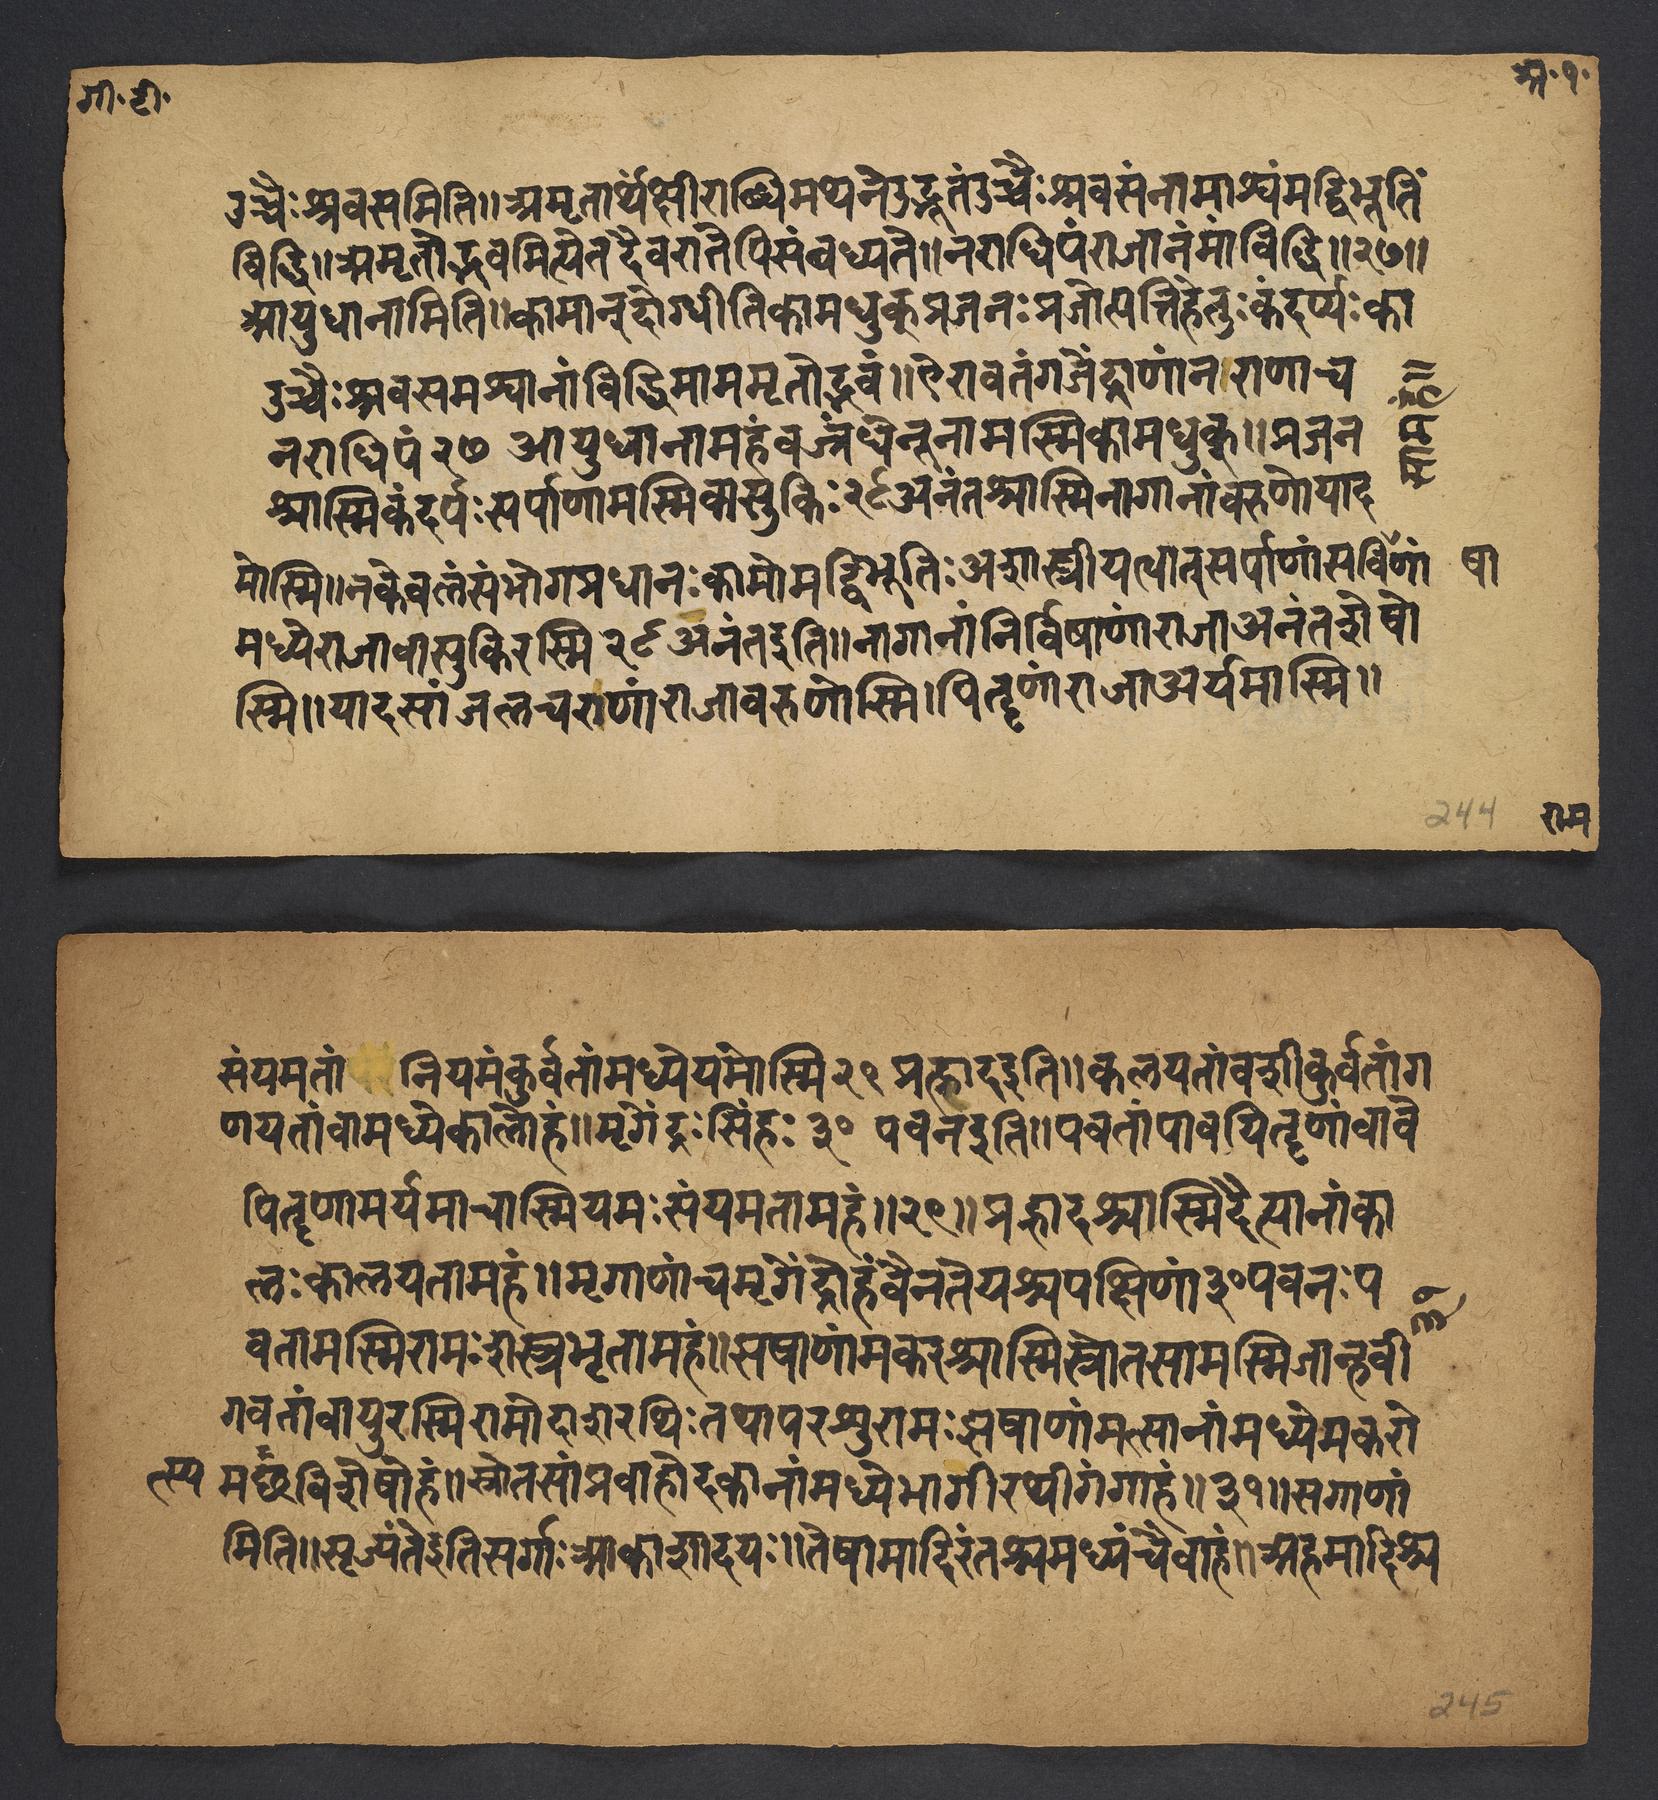 गी॰ टी॰
अ॰ १॰
उच्चैःश्रवसमिति॥अमृतार्थंक्षीराब्धिमथनेउद्भूतंउच्चैःश्रवसंनामाश्वंमद्विभूतिं
विद्धि॥अमृतोद्भवमित्येतदैवरातेपिसंबध्यते॥नराधिपंराजानंमांविद्धि॥२७॥
आयुधानामिति॥कामान्दोग्धीतिकामधुक्प्रजनःप्रजोत्पत्तिहेतुःकंदर्प्पःका
उच्चैःश्रवसमश्वानांविद्धिमाममृतोद्भवं॥ऐरावतंगजेंद्राणांनराणाच
नराधिपं२७ आयुधानामहंवज्रंधेनूनामस्मिकामधुक्॥प्रजन
श्चास्मिकंदर्पःसर्पाणामस्मिवासुकिः२८अनंतश्चास्मिनागानांवरुणोयाद
मोस्मि॥नकेवलंसंभोगप्रधानःकामोमद्विभूतिःअशास्त्रीयत्वात्सर्पाणांसविणां
षा
मध्येराजावासुकिरस्मि२८अनंतइति॥नागानांनिर्विषाणांराजाअनंतशेषो
स्मि॥यादसांजलचराणांराजावरुणोस्मि।पितॄणांराजाअर्यमास्मि॥
244
राम
संयमतां नियमंकुर्वतांमध्येयमोस्मि२९ प्रल्हादइति॥कलयतांवशीकुर्वतांग
णयतांवामध्येकालोहं॥मृगेंद्रःसिंहः३० पवनइति॥पवतांपावयितॄणांवावे
पितॄणामर्यमाचास्मियमःसंयमतामहं॥२९॥प्रल्हादश्चास्मिदैत्यानांका
लःकालयतामहं॥मृगाणांचमृगेंद्रोहंवैनतेयश्चपक्षिणां३०पवनःप
वतामस्मिरामःशस्त्रभृतामहं॥झषाणांमकरश्चास्मिस्त्रोतसामस्मिजान्हवी
गवतांवायुरस्मिरामोदाशरथिःतथापरशुरामःझषाणांमत्सानांमध्येमकरो
त्स्य
मछविशेषोहं॥स्त्रोतसांप्रवाहोदकानांमध्येभागीरथीगंगाहं॥३१॥सर्गाणां
मिति॥सृज्यंतेइतिसर्गाःआकाशादयः॥तेषामादिरंतश्चमध्यंचैवाहं॥अहमादिश्च
245